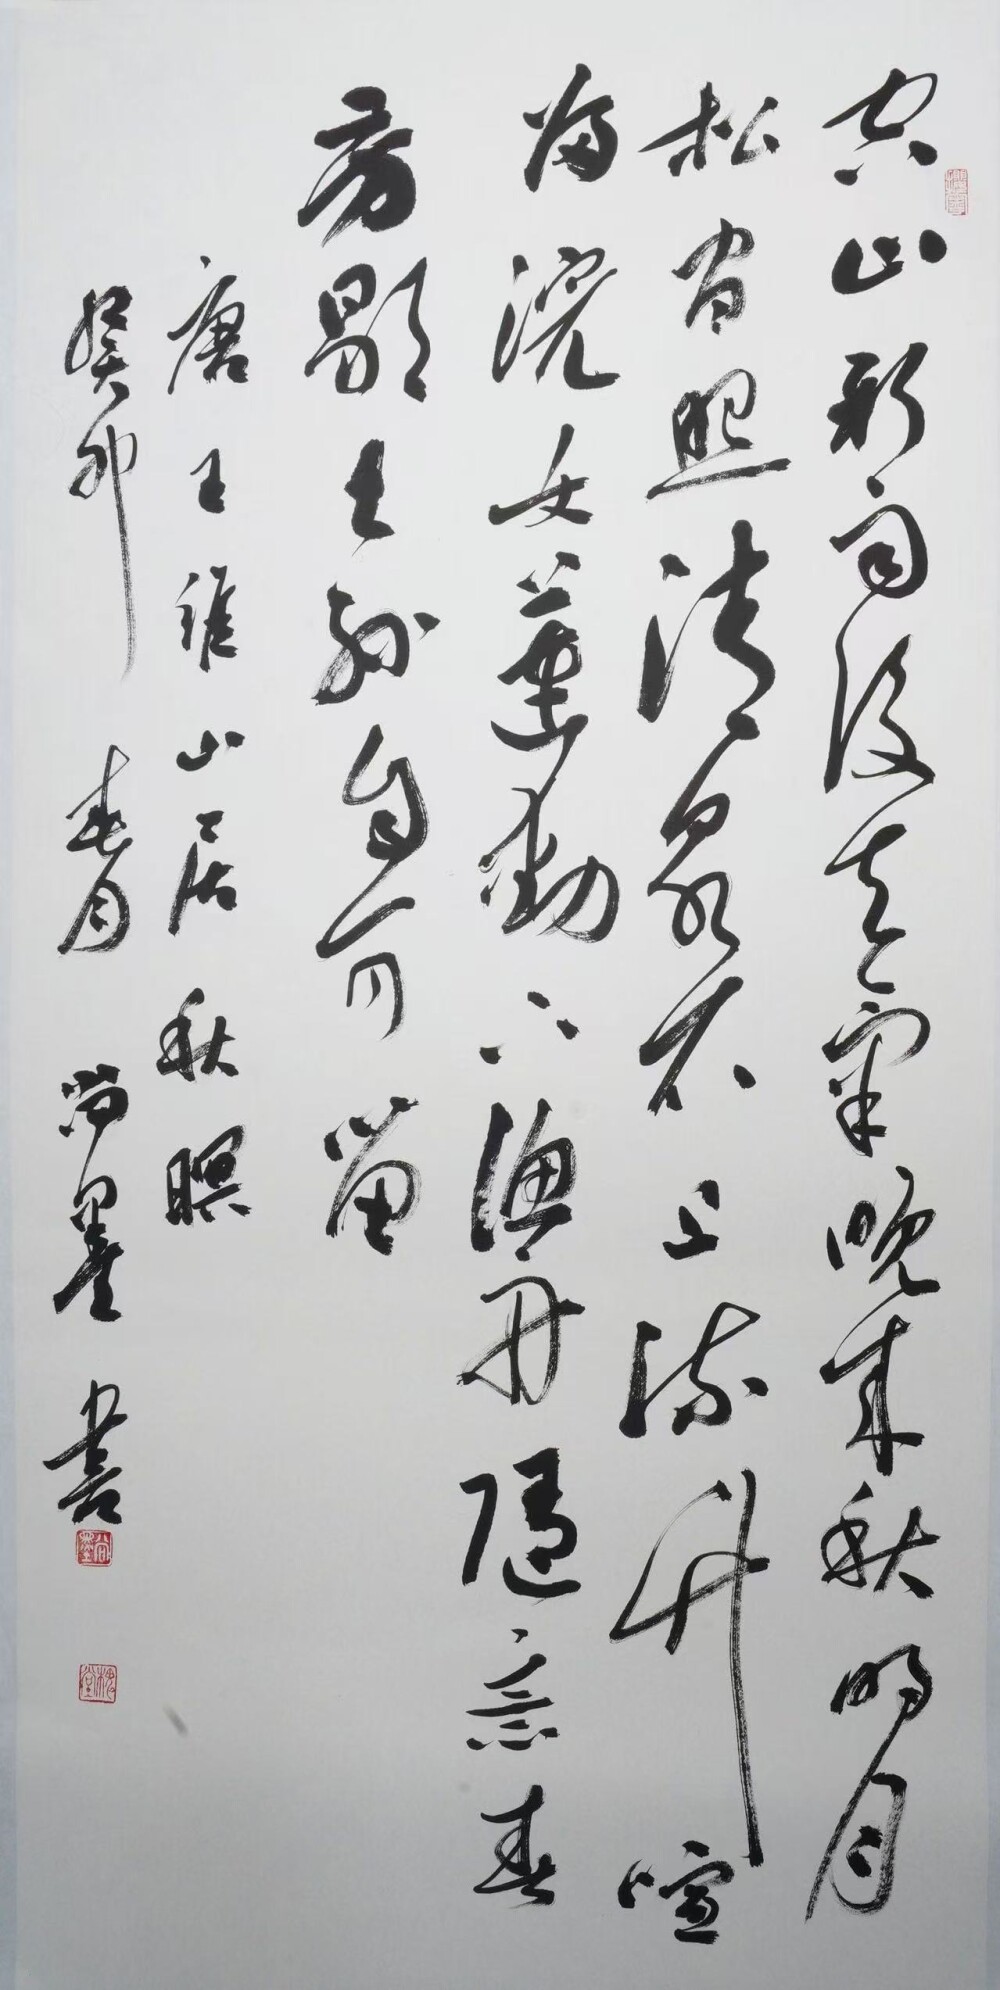 空山新雨後天氣晚来秋明月
松間照清泉石上流竹喧
歸浣女蓮動下漁舟隨意春
芳歇王孫自可留
唐王維山居秋暝
癸卯春月尚墨書
尚墨